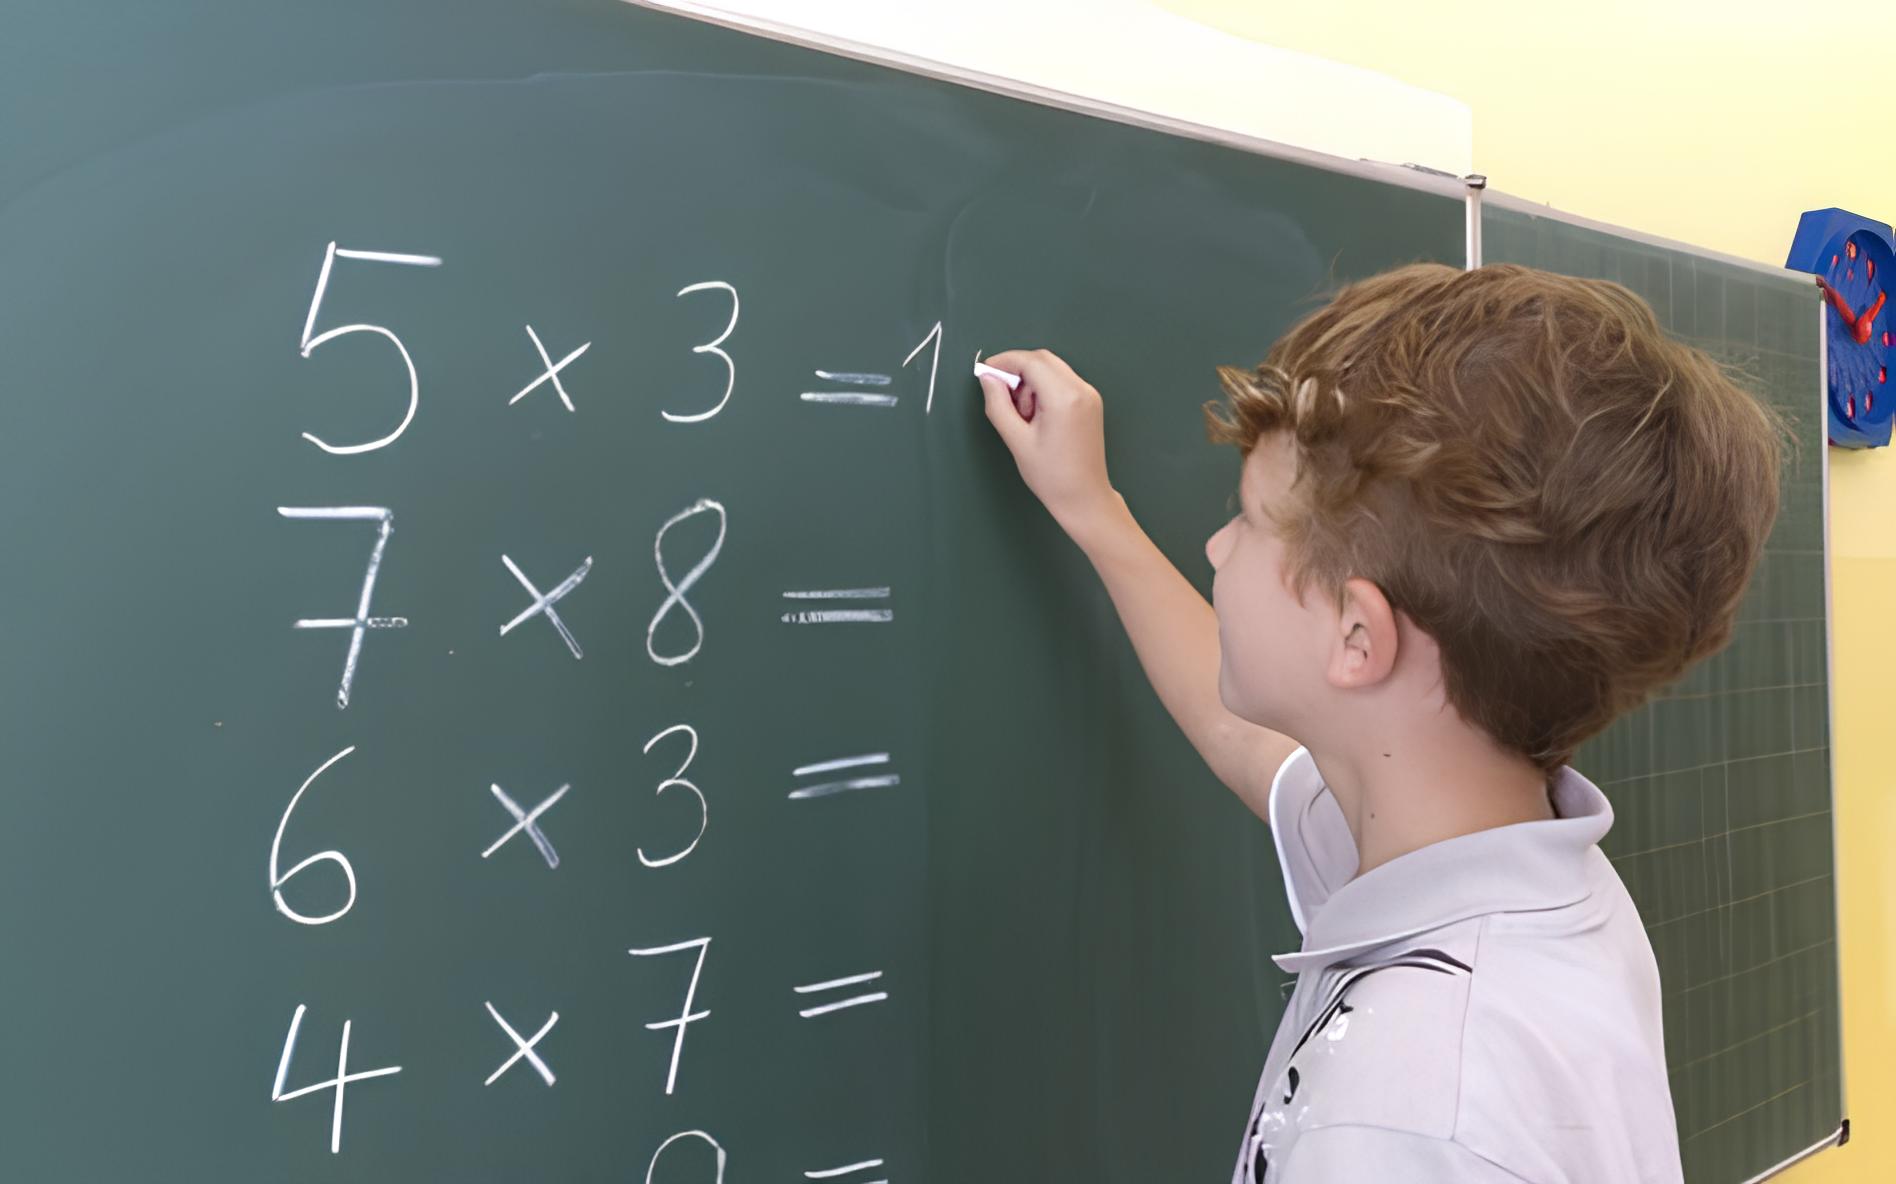 5 × 3 = 1
7 × 8 =
6 × 3 =
4 × 7 =
=